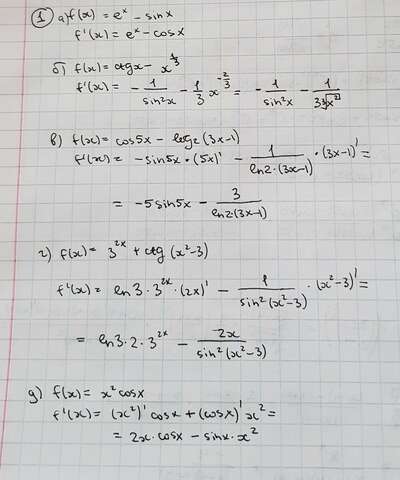 ① а) f(x) = eˣ − sinx
f'(x) = eˣ − cosx
б) f(x) = ctgx − x^(1/3)
f'(x) = − 1/sin²x − 1/3 x^(−2/3) = − 1/sin²x − 1/(3∛x²)
в) f(x) = cos5x − log₂(3x−1)
f'(x) = −sin5x · (5x)' − 1/(ln2·(3x−1)) · (3x−1)' =
= −5sin5x − 3/(ln2·(3x−1))
г) f(x) = 3^(2x) + ctg(x²−3)
f'(x) = ln3 · 3^(2x) · (2x)' − 1/sin²(x²−3) · (x²−3)' =
= ln3 · 2 · 3^(2x) − 2x/sin²(x²−3)
д) f(x) = x²cosx
f'(x) = (x²)' cosx + (cosx)' x² =
= 2x · cosx − sinx · x²